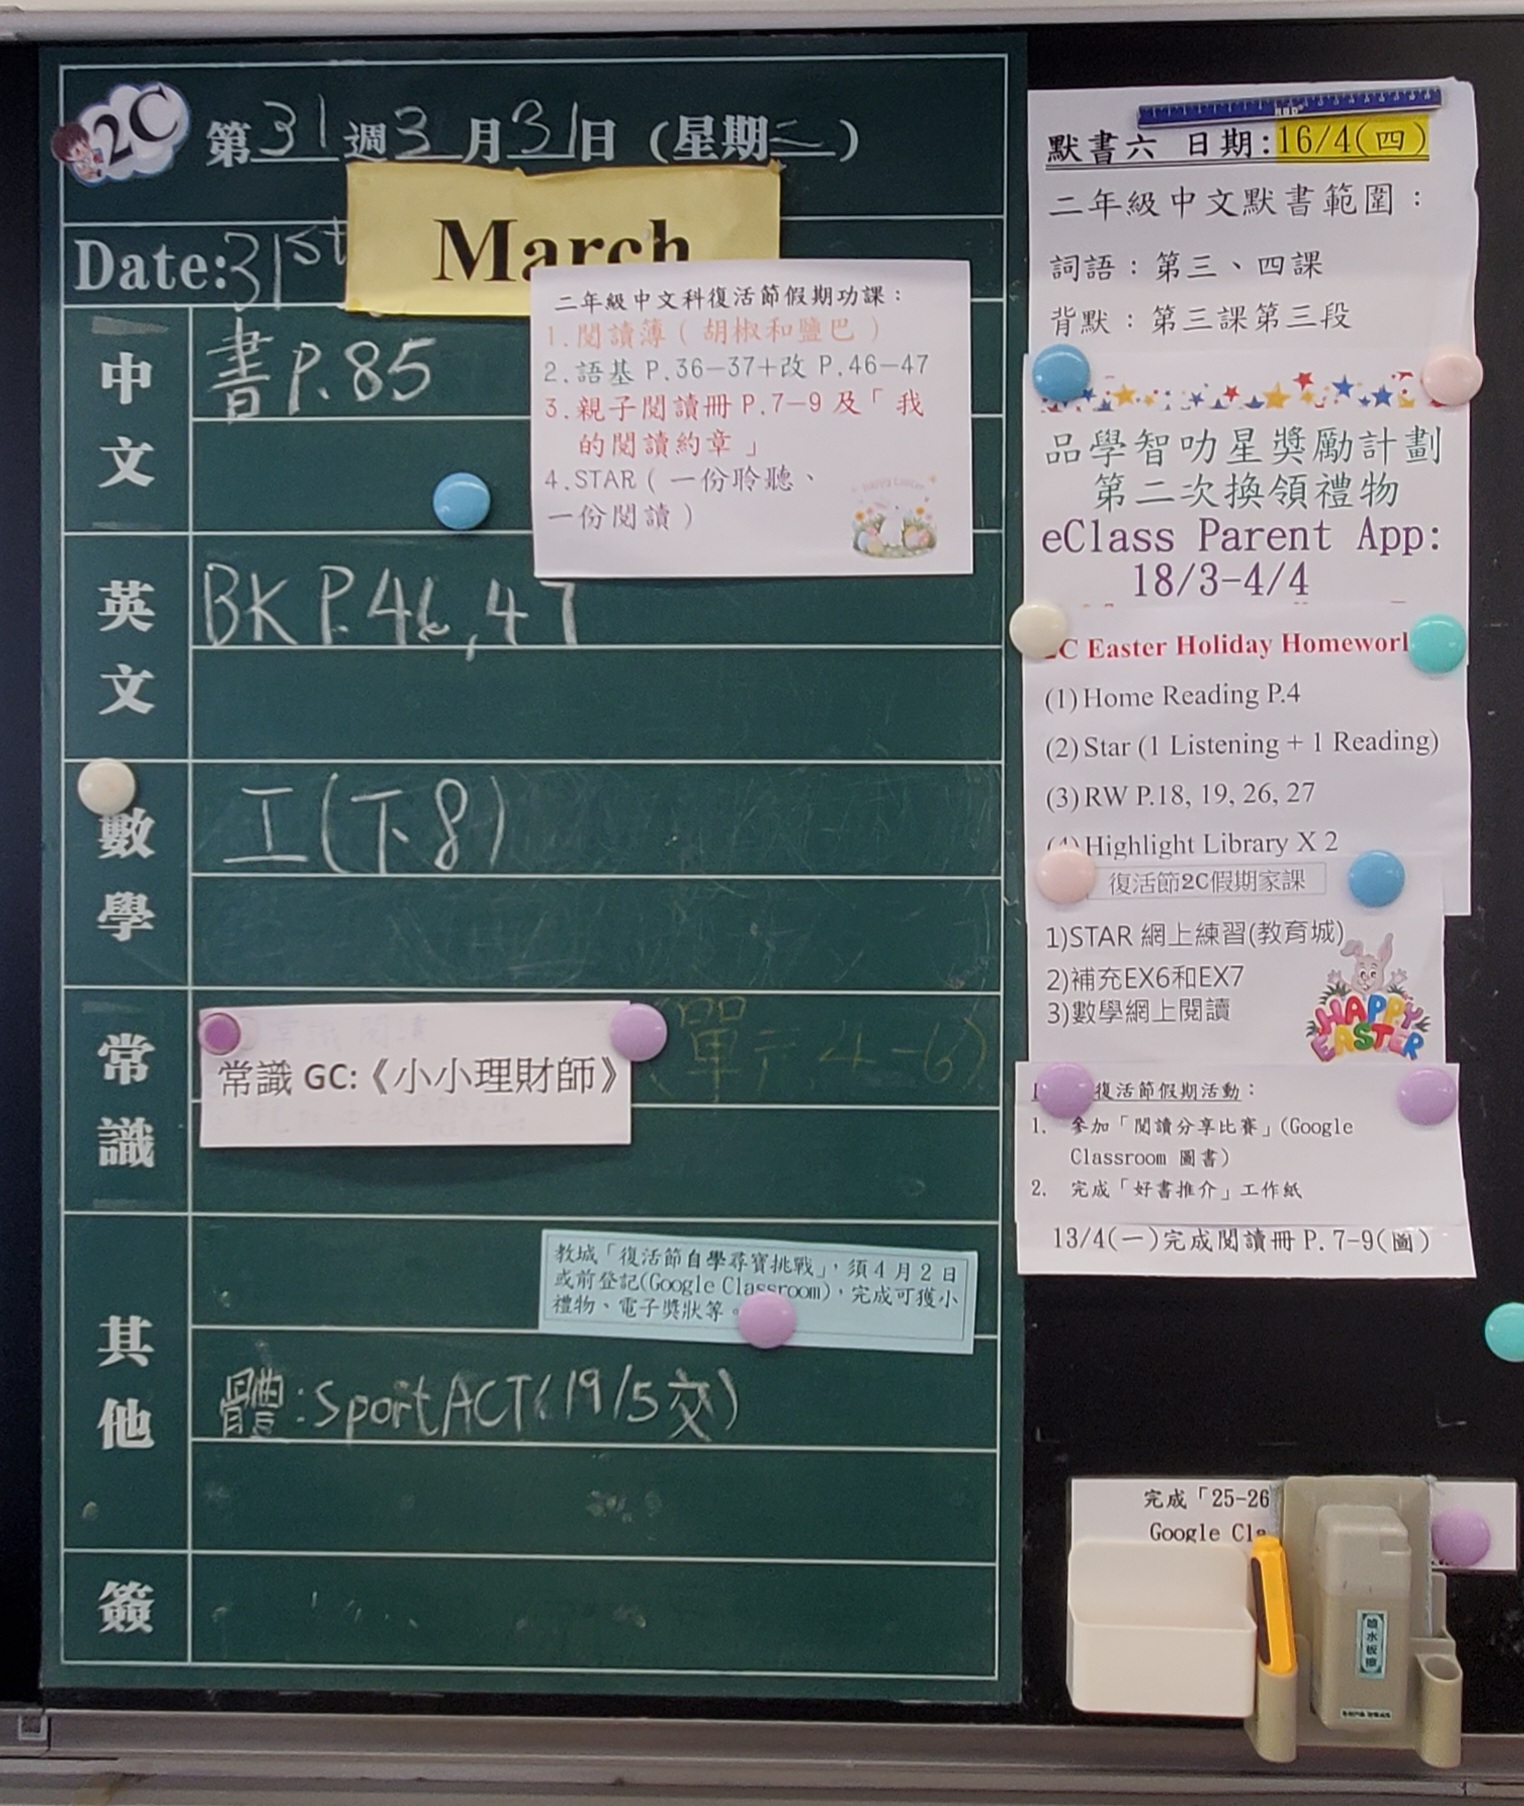 2C
第31週3月31日（星期二）
Date:31st March
中文
書P.85
二年級中文科復活節假期功課：
1.閱讀薄（胡椒和鹽巴）
2.語基 P.36—37+改 P.46—47
3.親子閱讀冊 P.7—9 及「我
的閱讀約章」
4.STAR（一份聆聽、
一份閱讀）
Happy Easter
英文
BK P.46,47
數學
工(下8)
常識
常識 GC:《小小理財師》
(單元4-6)
其他
教城「復活節自學尋寶挑戰」，須4月2日
或前登記(Google Classroom)，完成可獲小
禮物、電子獎狀等。
體:SportACT(19/5交)
簽
默書六 日期:16/4(四)
二年級中文默書範圍：
詞語：第三、四課
背默：第三課第三段
品學智叻星獎勵計劃
第二次換領禮物
eClass Parent App:
18/3-4/4
2C Easter Holiday Homework
(1) Home Reading P.4
(2) Star (1 Listening + 1 Reading)
(3) RW P.18, 19, 26, 27
(4) Highlight Library X 2
復活節2C假期家課
1)STAR 網上練習(教育城)
2)補充EX6和EX7
3)數學網上閱讀
HAPPY
EASTER
復活節假期活動：
1. 參加「閱讀分享比賽」(Google
Classroom 圖書)
2. 完成「好書推介」工作紙
13/4(一)完成閱讀冊 P.7-9(圖)
完成「25-26
Google Cla
噴水板擦